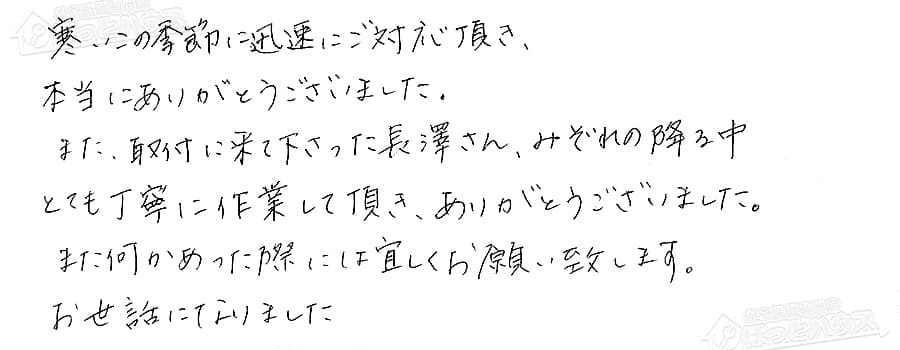 寒いこの季節に迅速にご対応頂き、
本当にありがとうございました。
また、取付に来て下さった長澤さん、みぞれの降る中
とても丁寧に作業して頂き、ありがとうございました。
また何かあった際には宜しくお願い致します。
お世話になりました